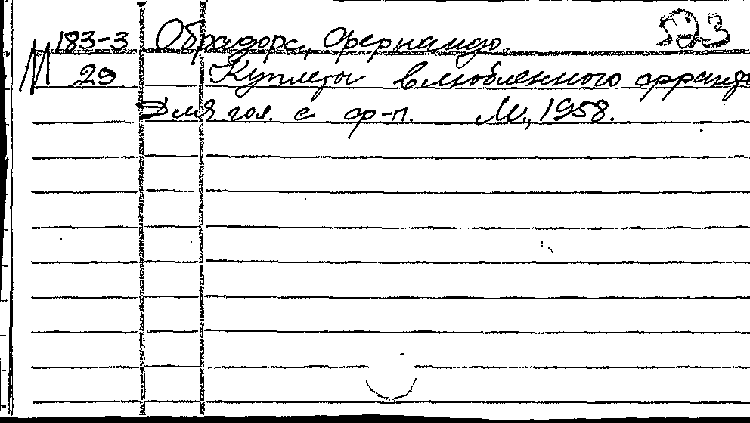 183-3 Обрадорс, Фернандо 523
М 29 Куплеты влюбленного
Для гол. с ф-п. М., 1958.